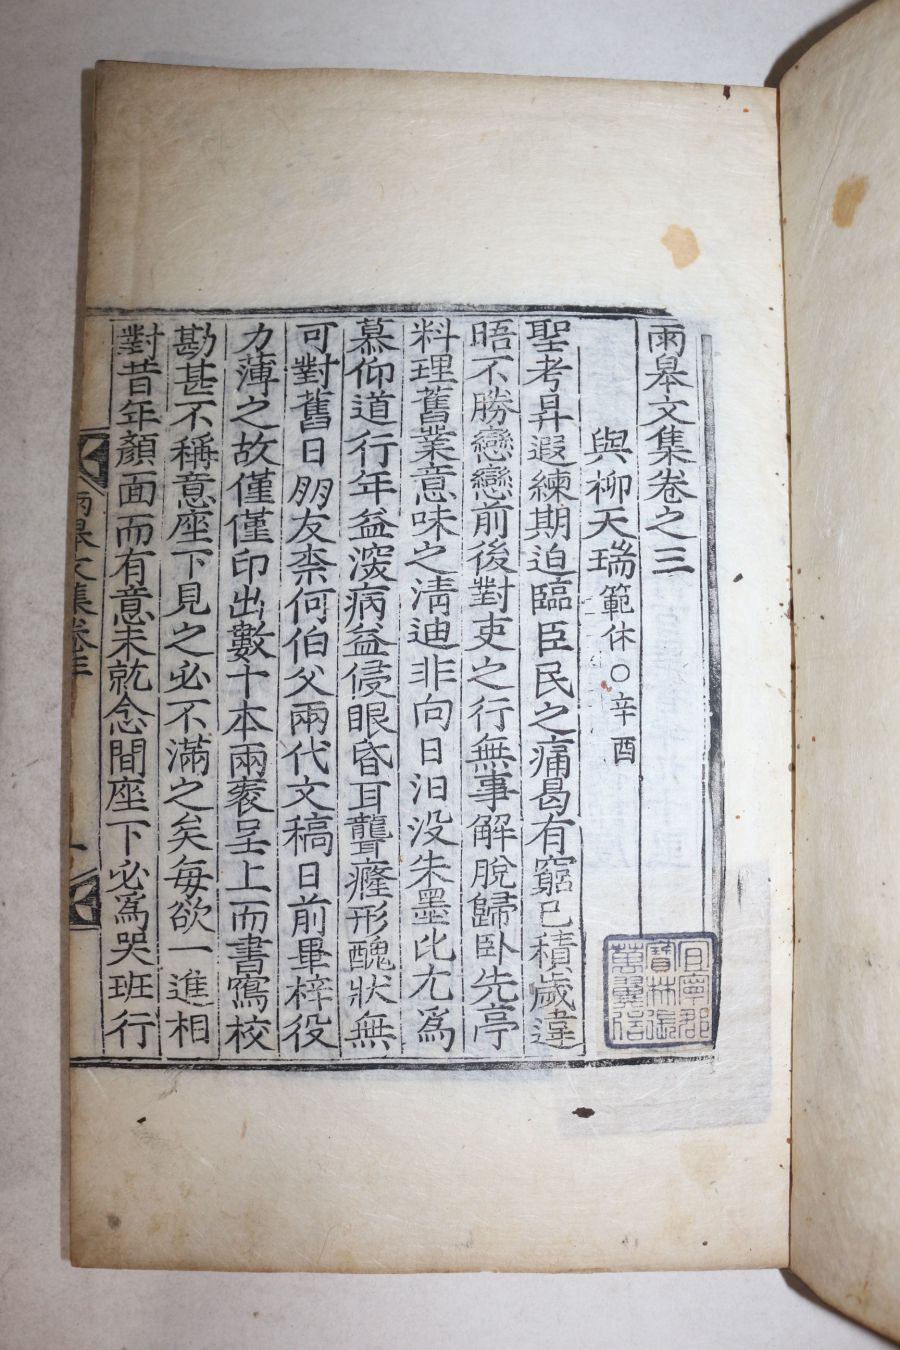 雨皋文集卷之三
與柳天瑞範休○辛酉
聖考昇遐練期迫臨臣民之痛曷有窮已積歲違
晤不勝戀戀前後對吏之行無事解脫歸臥先亭
料理舊業意味之淸迪非向日汨没朱墨比尤爲
慕仰道行年益深病益侵眼昏耳聾癃形醜狀無
可對舊日朋友柰何伯父兩代文稿日前畢梓役
力薄之故僅僅印出數十本兩袠呈上而書寫校
勘甚不稱意座下見之必不滿之矣每欲一進相
對昔年顏面而有意未就念間座下必爲哭班行
雨皋文集卷三
一
宜寧郡